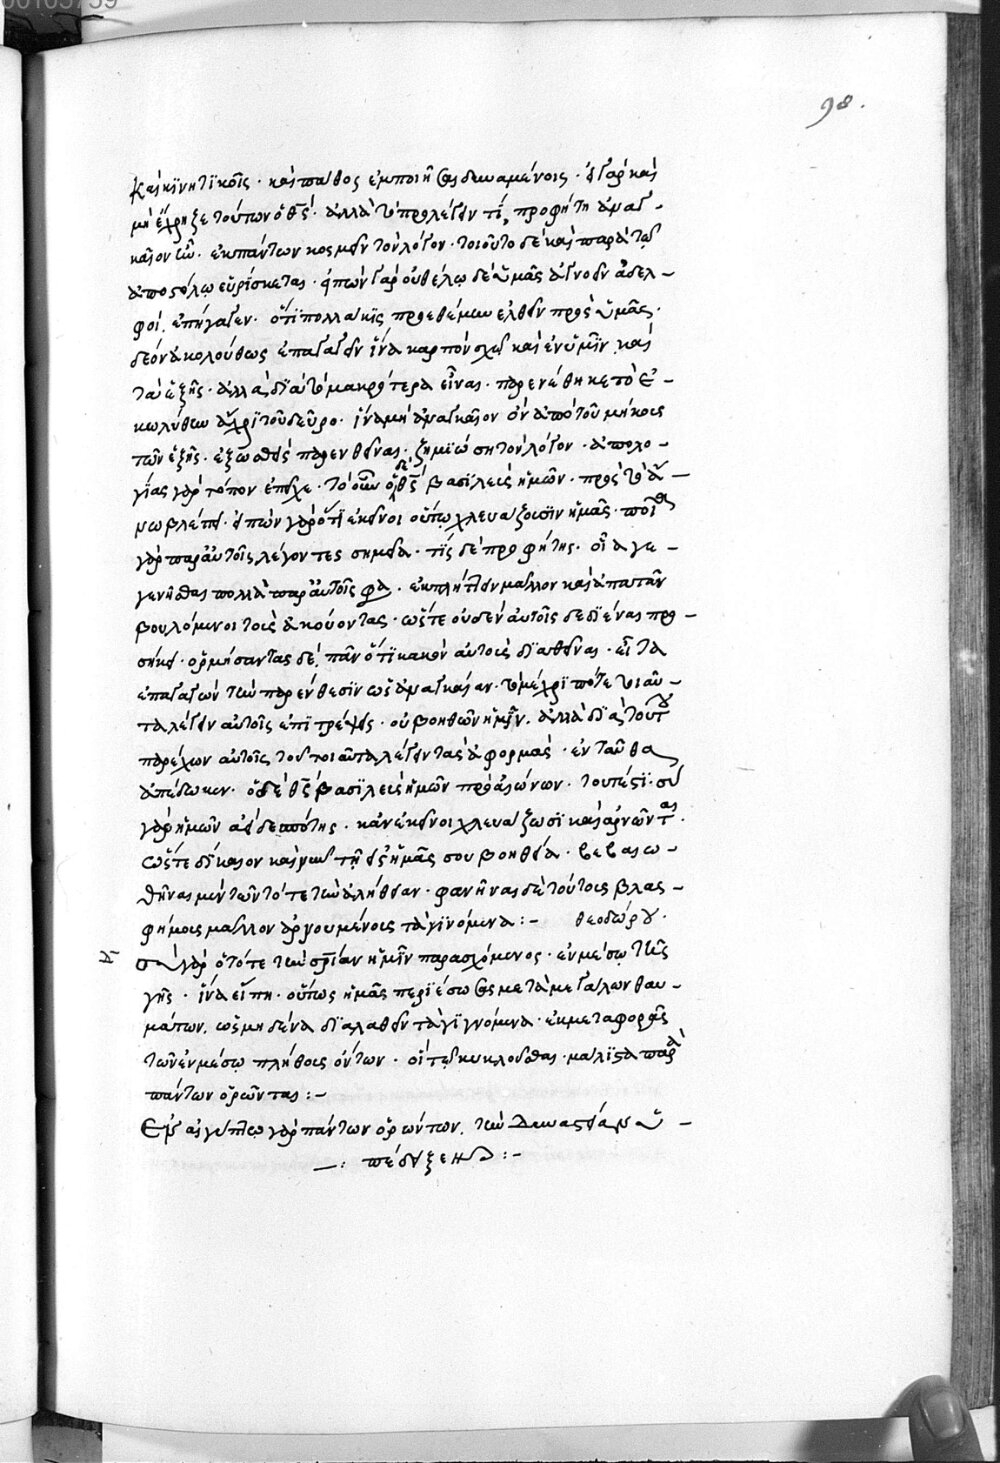 98.
καὶ κϊνητϊκοῖς · καὶ πάθος ἐμποιῆσαι δυναμένοις · εἰ γὰρ καὶ
μὴ ἔχρηζε τούτων ὁ θς̄ · ἀλλὰ τὸ προλέγειν τί, προφήτη ἀναγ-
καῖον ὂν · ἐκ πάντων κοσμεῖν τὸν λόγον · τοιοῦτο δὲ καὶ παρὰ τῶ
ἀποστόλω εὑρίσκεται · εἰπὼν γὰρ οὐ θέλω δὲ ὑμᾶς ἀγνοεῖν ἀδελ-
φοί. ἐπήγαγεν · ὅτϊ πολλάκϊς προεθέμην ἐλθεῖν πρὸς ὑμᾶς ·
δέον ἀκολούθως ἐπαγαγεῖν ἵνα καρπὸν σχῶ καὶ ἐν ὑμῖν καὶ
τὰ ἑξῆς · ἀλλὰ διὰ τὸ μακρότερα εἶναι · παρενέθηκε τὸ ἐ-
κωλύθην ἄχρϊ τοῦ δεῦρο · ἵνα μὴ ἀναγκαῖον ὂν ἀπὸ τοῦ μήκους
τῶν ἑξῆς · ἔξωθεν παρενθεῖναι · ζημϊώση τὸν λόγον · ἀπολο-
γίας γὰρ τόπον ἐπεῖχε · τὸ οὖν ὁ δὲ θς̄ βασϊλεὺς ἡμῶν · πρὸς τὸ ἄ-
νω βλέπει · εἰπὼν γὰρ ὅτϊ ἐκεῖνοι οὕτω χλευάζουσϊν ἡμᾶς · ποῖα
γὰρ παρ' αὐτοῖς λέγοντες σημεῖα · τίς δὲ προφήτης · οἷα γε-
γενῆσθαι πολλὰ παρ' αὐτοῖς φα · ἐκπλήττειν μᾶλλον καὶ ἀπατᾶν
βουλόμενοι τοὺς ἀκούοντας · ὥστε οὐδὲν αὐτοῖς δεδϊέναι προ-
σήκει · ὁρμήσαντας δὲ, πᾶν ὁτϊ κακὸν αὐτοὺς διαθεῖναι · εἶτα
ἐπαγαγὼν τὴν παρένθεσϊν ὡς ἀναγκαίαν · τὸ μέχρϊ πότε τοιαῦ-
τα λέγειν αὐτοῖς ἐπϊτρέψεις · οὐ βοηθῶν ἡμῖν. ἀλλὰ διὰ τούτου
παρέχων αὐτοῖς τοῦ τοιαῦτα λέγειν τὰς ἀφορμάς · ἐνταῦθα
ἀπέδωκεν · ὁ δὲ θς̄ βασϊλεὺς ἡμῶν πρὸ αἰώνων · τουτέστϊ · σὺ
γὰρ ἡμῶν ἀεὶ δεσπότης · κἂν ἐκεῖνοι χλευάζωσϊ καὶ ἀρνῶνται ·
ὥστε δίκαιον καὶ νῦν τῆ εἰς ἡμᾶς σου βοηθεία · βεβαιω-
θῆναι μὲν τῶν τότε τὴν ἀλήθειαν · φανῆναι δὲ τούτοις βλασ-
φήμοις μᾶλλον ἀρνουμένοις τὰ γϊνόμενα :- θεοδώρου ·
σὺ γὰρ ὁ τότε τὴν σρίαν ἡμῖν παρασχόμενος · ἐν μέσω τῆς
γῆς · ἵνα εἴπη · οὕτως ἡμᾶς περϊέσωσας μετὰ μεγάλων θαυ-
μάτων. ὡς μηδένα δϊαλαθεῖν τὰ γϊγνόμενα · ἐκ μεταφορᾶς
τῶν ἐν μέσω πλήθους ὄντων · οἳ τῶ κυκλοῦσθαι · μάλϊστα παρὰ
πάντων ὁρῶνται :-
Ἐν αἰγύπτω γὰρ πάντων ὁρώντων. τὴν δυναστείαν ὑ-
-: πέδειξεν :-